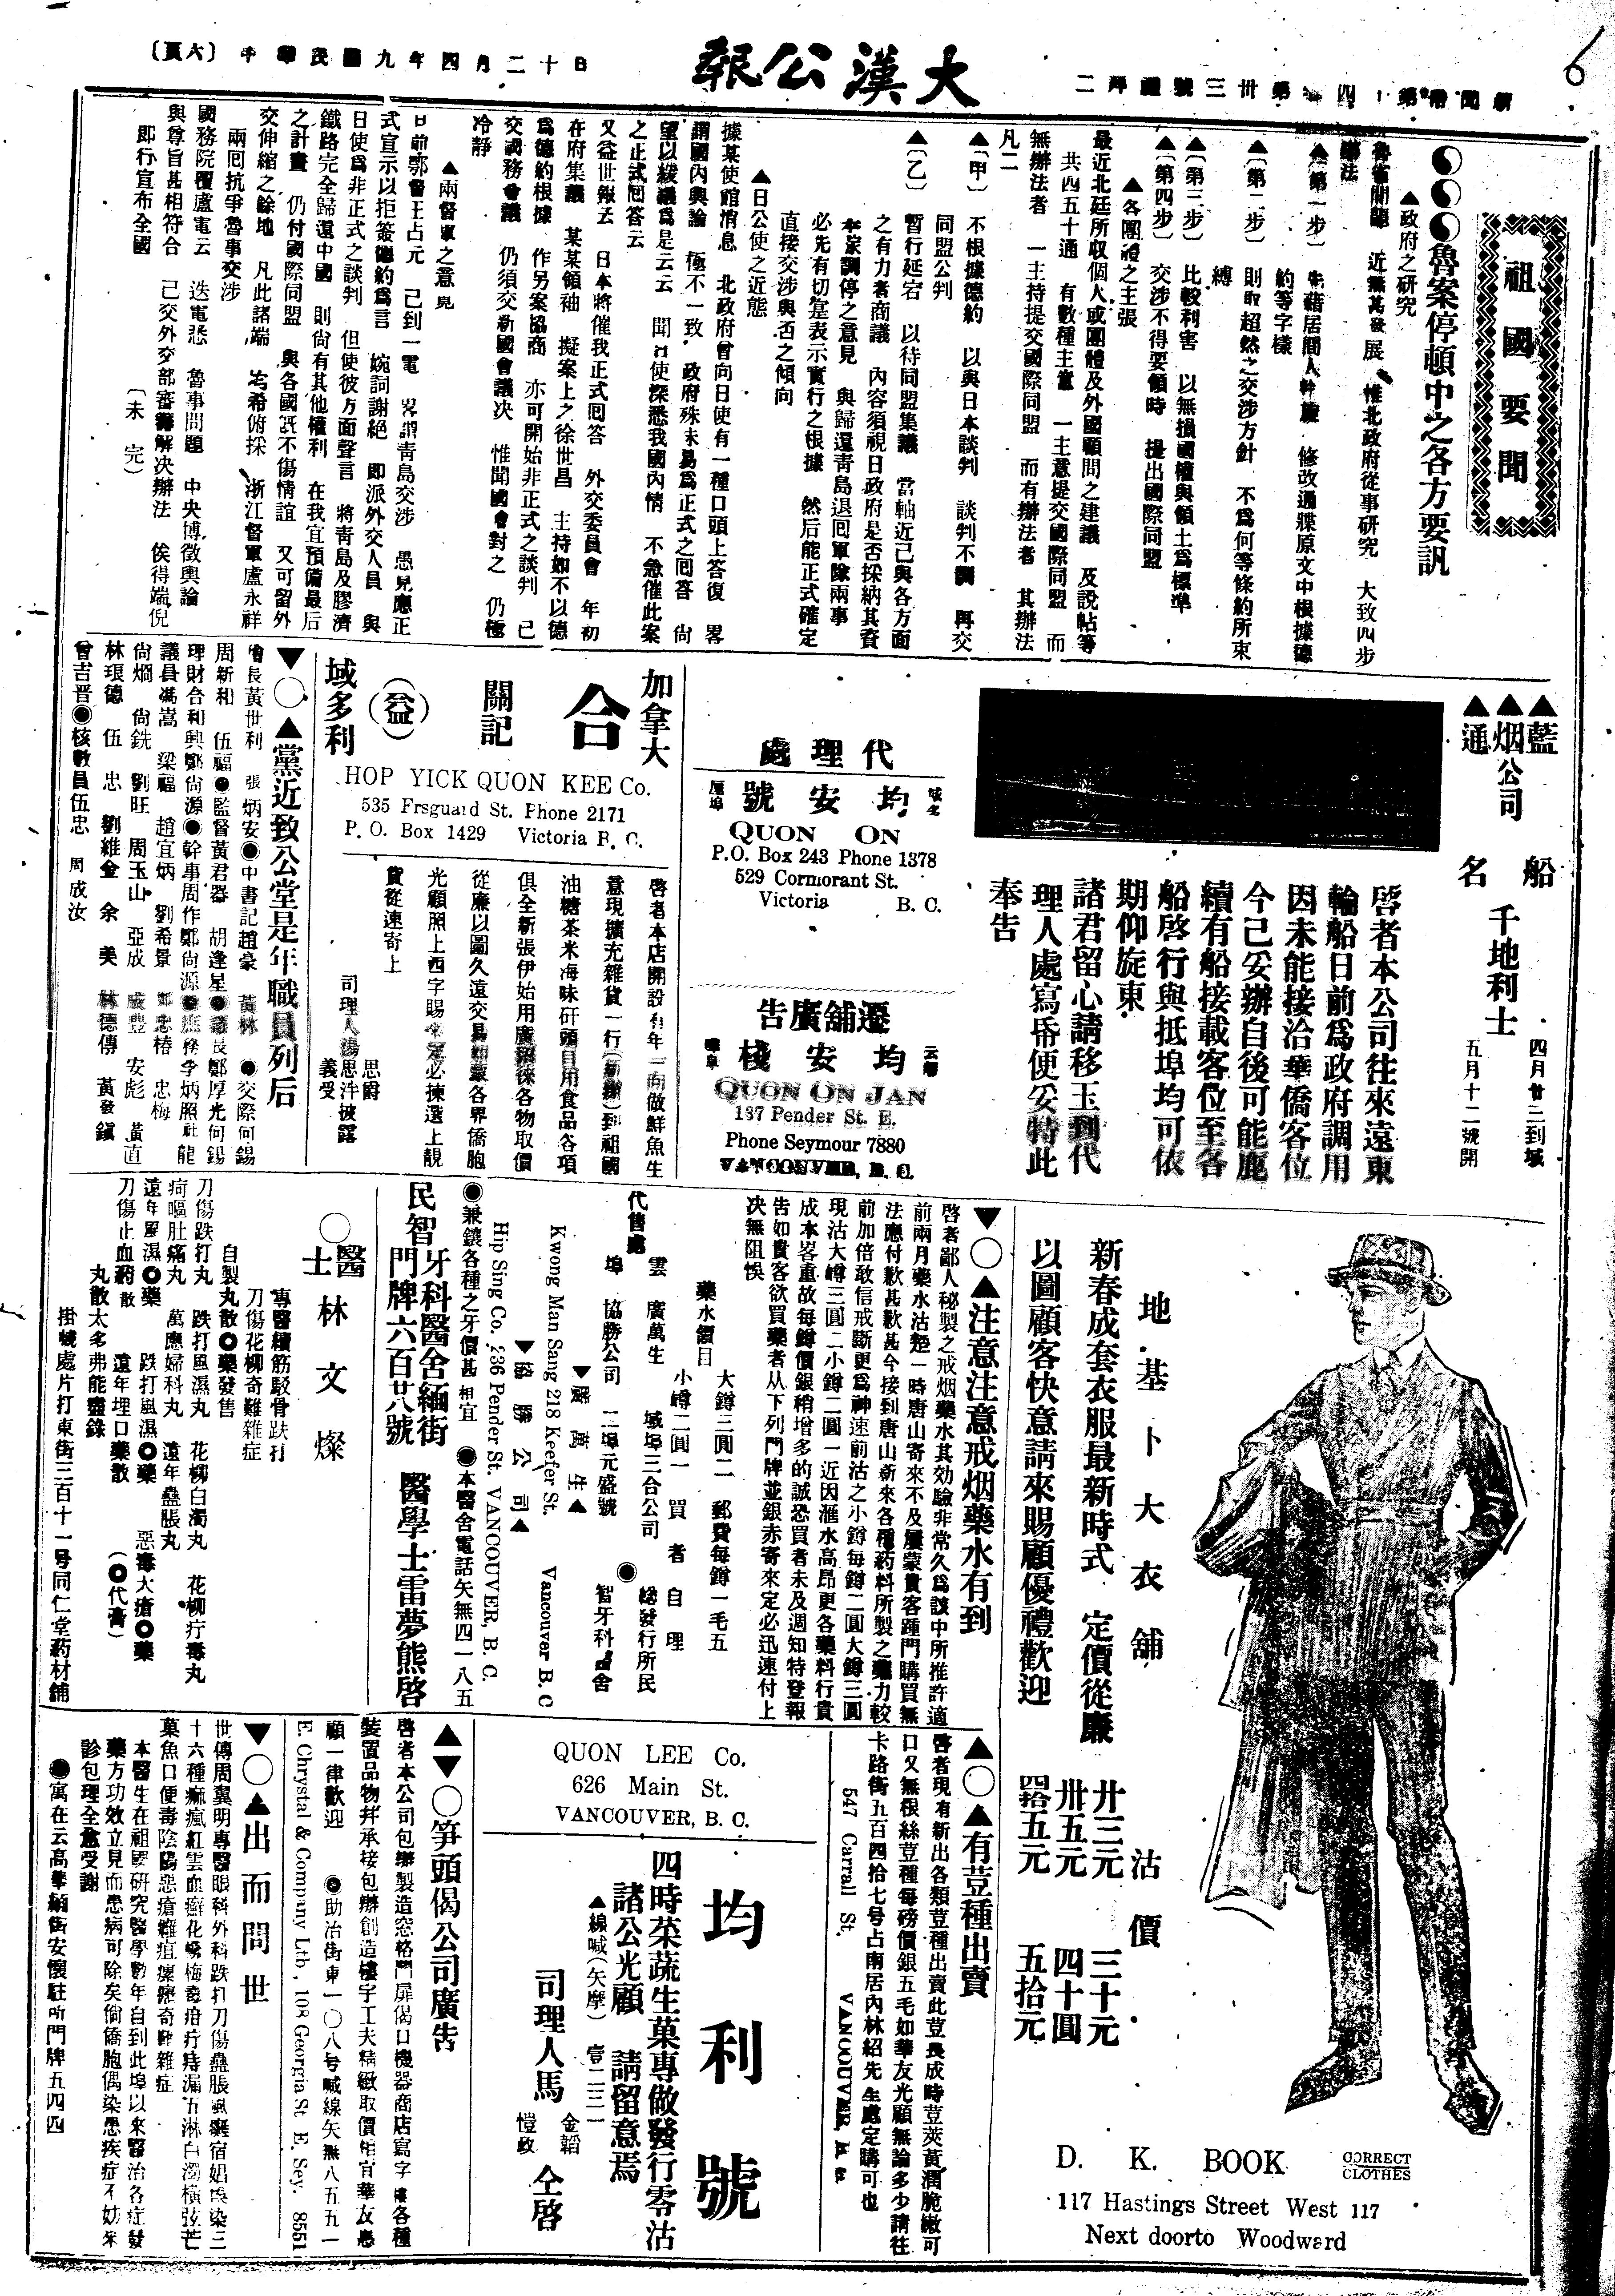 大漢公報
中華民國九年四月二十日
〔六頁〕
6
祖國要聞
魯案停頓中之各方要訊
▲政府之研究
近無甚發展 惟北政府從事研究 大致四步
辦法
▲〔第一步〕
修改通牒原文中根據德
約等字樣
▲〔第二步〕 則取超然之交涉方針 不爲何等條約所束
縛
▲〔第三步〕 比較利害 以無損國權與領土爲標準
▲〔第四步〕 交涉不得要領時 提出國際同盟
▲各團體之主張
最近北廷所收個人或團體及外國顧問之建議 及說帖等
共四五十通 有數種主意 一主意提交國際同盟 而
無辦法者 一主持提交國際同盟 而有辦法者 其辦法
凡二
▲〔甲〕 不根據德約 以與日本談判 談判不調 再交
同盟公判
▲〔乙〕 暫行延宕 以待同盟集議 當軸近已與各方面
之有力者商議 內容須視日政府是否採納其資
本家調停之意見 與歸還靑島退回軍隊兩事
必先有切寔表示實行之根據 然后能正式確定
直接交涉與否之傾向
▲日公使之近態
據某使館消息 北政府曾向日使有一種口頭上答復 畧
謂國內輿論 極不一致 政府殊未易爲正式之回答 尙
望以緩議爲是云云 聞日使深悉我國內情 不急催此案
之正式回答云
又益世報云 日本將催我正式回答 外交委員會 年初
在府集議 某某領袖 擬案上之徐世昌 主持如不以德
爲德約根據 作另案協商 亦可開始非正式之談判 已
交國務會議 仍須交新國會議決 惟聞國會對之 仍極
冷靜
▲兩督軍之意見
日前鄂督王占元 已到一電 畧謂靑島交涉 愚見應正
式宣示以拒簽德約爲言 婉詞謝絕 即派外交人員 與
日使爲非正式之談判 但使彼方面聲言 將靑島及膠濟
鐵路完全歸還中國 則尙有其他權利 在我宜預備最后
之計畫 仍付國際同盟 與各國旣不傷情誼 又可留外
交伸縮之餘地 凡此諸端 均希俯採 浙江督軍盧永祥
兩囘抗爭魯事交涉
國務院覆盧電云 迭電悉 魯事問題 中央博徵輿論
與尊旨甚相符合 已交外交部審籌解决辦法 俟得端倪
即行宣布全國
〔未完〕
▲藍
▲烟
▲通
公司
船名
千地利士
四月廿三到域
五月十二號開
啓者本公司往來遠東
輪船日前爲政府調用
因未能接洽華僑客位
今已妥辦自後可能陸
續有船接載客位至各
船啓行與抵埠均可依
期仰旋東
諸君留心請移玉到代
理人處寫帋便妥特此
奉告
代理處
域多厘埠
均安號
QUON ON
P.O. Box 243 Phone 1378
529 Cormorant St.
Victoria B. C.
遷舖廣告
均安棧
QUON ON JAN
137 Pender St. E.
Phone Seymour 7880
VANCOUVER, B. C.
加拿大
合
(益)
關記
域多利
HOP YICK QUON KEE Co.
535 Frsguard St. Phone 2171
P. O. Box 1429 Victoria B. C.
啓者本店開設有年一向做鮮魚生
意現擴充雜貨一行(新辦)到祖國
油糖茶米海味矸頭日用食品各項
俱全新張伊始用廣招徠各物取價
從廉以圖久遠交易如蒙各界僑胞
光顧照上西字賜來定必揀選上靚
貨從速寄上
司理人湯
思爵
思泮
義受
披露
▼○▲黨近致公堂是年職員列后
會長黃世利 張炳安●中書記趙豪 黃林 ●交際何錫
周新和 伍福●監督黃君器 胡逢星●議長鄭厚光何錫
理財合和興鄭尙源●幹事周作鄭尙源●庶務李炳照 龍
議員馮嵩 梁福 趙宜炳 劉希景 鄭忠椿 忠梅
尙燗 尙銑 劉旺 周玉山 亞成 成豐 安彪 黃直
林琅德 伍忠 劉維金 余美 林德傳 黃發鎭
曾吉晋●核數員伍忠 周成汝
地基卜大衣舖
新春成套衣服最新時式 定價從廉
以圖顧客快意請來賜顧優禮歡迎
沽價
廿三元 三十元
卅五元 四十圓
四拾五元 五拾元
D. K. BOOK
CORRECT CLOTHES
117 Hastings Street West 117
Next doorto Woodward
▼○▲注意注意戒烟藥水有到
啓者鄙人秘製之戒烟藥水其効驗非常久爲該中所推許適
前兩月藥水沽楚一時唐山寄來不及屢蒙貴客踵門購買無
法應付歉甚歉甚今接到唐山新來各種葯料所製之藥力較
前加倍敢信戒斷更爲神速前沽之小罇每罇二圓大罇三圓
現沽大罇三圓二小罇二圓一近因滙水高昂更各藥料行貴
成本畧重故每罇價銀稍增多的誠恐買者未及週知特登報
告如貴客欲買藥者从下列門牌並銀赤寄來定必迅速付上
决無阻悞
藥水價目
大罇三圓二 郵費每罇一毛五
小罇二圓一 買者自理
代售處
雲埠
廣萬生
協勝公司
域埠三合公司
二埠元盛號
●總發行所民
智牙科醫舍
▼廣萬生▲
Kwong Man Sang 218 Keefer St. Vancouver B. C
▼協勝公司▲
Hip Sing Co. 236 Pender St. VANCOUVER, B. C.
●兼鑲各種之牙價甚相宜 ●本醫舍電話矢無四一八五
民智牙科醫舍緬街
門牌六百廿八號
醫學士雷夢熊啓
○醫士林文燦
專醫續筋駁骨跌打
刀傷花柳奇難雜症
自製丸散●藥發售
刀傷跌打丸 跌打風濕丸 花柳白濁丸 花柳疔毒丸
痾嘔肚痛丸 萬應婦科丸 遠年蠱脹丸
遠年風濕●藥 跌打風濕●藥 惡毒大瘡●藥
刀傷止血葯散 遠年埋口藥散 (●代膏)
丸散太多弗能盡錄
掛號處片打東街三百十一号同仁堂葯材舖
▲○▲有荳種出賣
啓者現有新出各類荳種出賣此荳長成時荳莢黃潤脆嫩可
口又無根絲荳種每磅價銀五毛如華友光顧無論多少請往
卡路街五百四拾七号占南居內林紹先生處定購可也
547 Carrall St. VANCOUVER, B. C.
QUON LEE Co.
626 Main St.
VANCOUVER, B. C.
均利號
四時菜蔬生菓專做發行零沽
諸公光顧 請留意焉
▲線喊(矢摩) 壹二三一
司理人馬
金韜
愷政
仝啓
▲▼○笋頭偈公司廣告
啓者本公司包辦製造窓格門扉偈口機器商店寫字樓各種
裝置品物并承接包辦創造樓宇工夫精緻取價相宜華友惠
顧一律歡迎 ●助治街東一〇八号喊線矢無八五五一
E. Chrystal & Company Ltb, 108 Georgia St E. Sey. 8551
▼○▲出而問世
世傳周翼明專醫眼科外科跌打刀傷蠱脹風癱宿娼誤染三
十六種痲瘋紅雲血癬化蟠梅毒疳疔痔漏五淋白濁橫弦芒
菓魚口便毒陰陽惡瘡癰疽瘰癧奇難雜症
本醫生在祖國研究醫學數年自到此埠以來醫治各症發
藥方功效立見而患病可除矣倘僑胞偶染患疾症不妨來
診包理全愈受謝
●寓在云高華緬街安懷駐所門牌五四四